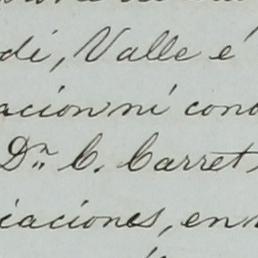 di, Valle é
acion ni cono
Dn. C. Carret
iaciones, en